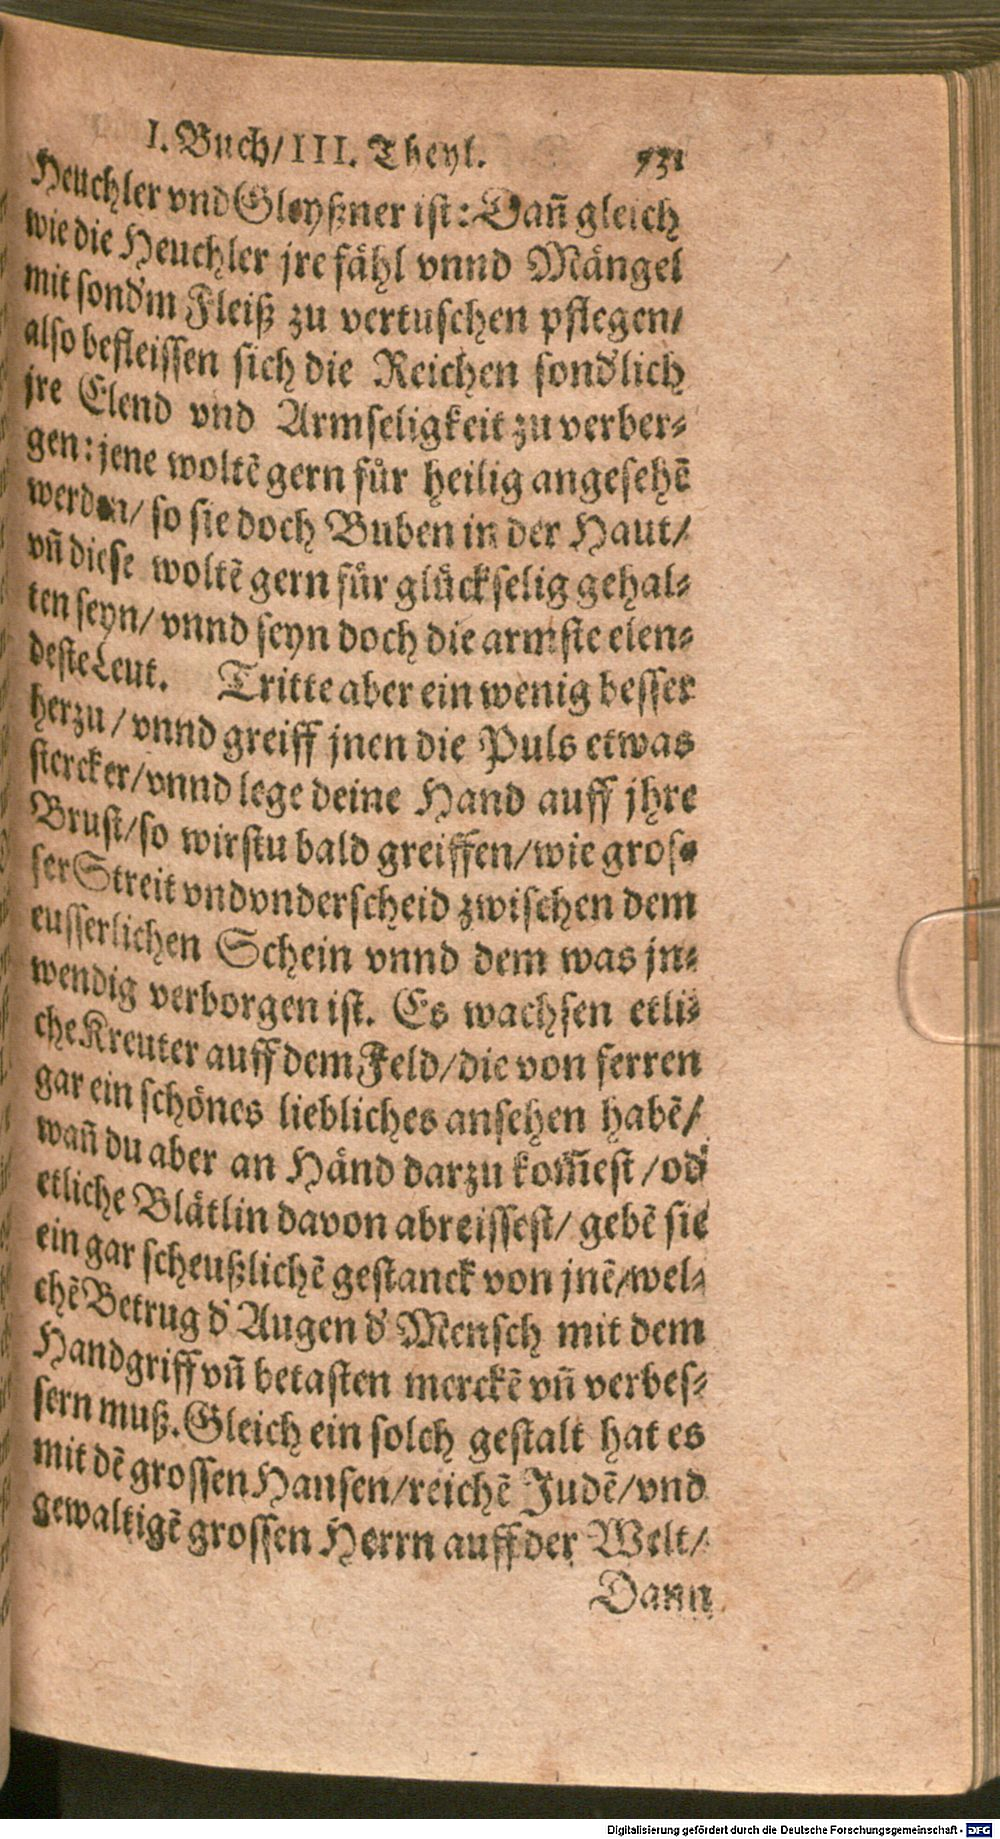 I. Buch/III. Theyl. 931
Heuchler vnd Gleyßner ist: Dañ gleich
wie die Heuchler jre fähl vnnd Mängel
mit sond'm Fleiß zu vertuschen pflegen/
also befleissen sich die Reichen sond'lich
jre Elend vnd Armseligkeit zu verber⸗
gen: jene woltẽ gern fuͤr heilig angesehẽ
werden/ so sie doch Buben in der Haut/
vñ diese woltẽ gern fuͤr gluͤckselig gehal⸗
ten seyn/ vnnd seyn doch die armste elen⸗
deste Leut. Tritte aber ein wenig besser
herzu/ vnnd greiff jnen die Puls etwas
stercker/ vnnd lege deine Hand auff jhre
Brust/ so wirstu bald greiffen/ wie gros⸗
ser Streit vnd vnderscheid zwischen dem
eusserlichen Schein vnnd dem was jn⸗
wendig verborgen ist. Es wachsen etli⸗
che Kreuter auff dem Feld/ die von ferren
gar ein schönes liebliches ansehen habẽ/
wañ du aber an Händ darzu kom̃est/ od'
etliche Blätlin davon abreissest/ gebẽ sie
ein gar scheußlichẽ gestanck von jnẽ/ wel⸗
chẽ Betrug d' Augen d' Mensch mit dem
Handgriff vñ betasten merckẽ vñ verbes⸗
sern muß. Gleich ein solch gestalt hat es
mit dẽ grossen Hansen/ reichẽ Judẽ/ vnd
gewaltigẽ grossen Herrn auff der Welt/
Dann
Digitalisierung gefördert durch die Deutsche Forschungsgemeinschaft - DFG